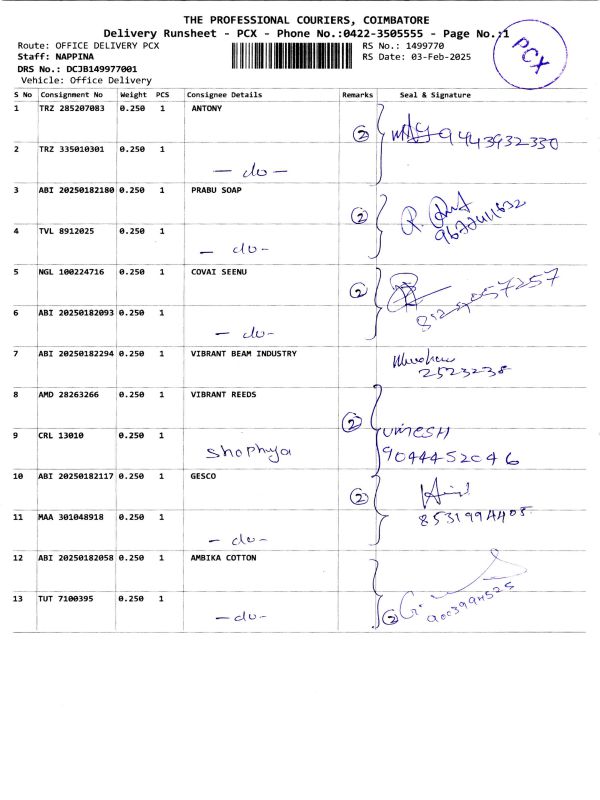 THE PROFESSIONAL COURIERS, COIMBATORE
Delivery Runsheet - PCX - Phone No.:0422-3505555 - Page No.:1
Route: OFFICE DELIVERY PCX
RS No.: 1499770
PCX
Staff: NAPPINA
RS Date: 03-Feb-2025
DRS No.: DCJB149977001
Vehicle: Office Delivery
S No Consignment No Weight PCS Consignee Details Remarks Seal & Signature
1 TRZ 285207083 0.250 1 ANTONY
2 9443932330
2 TRZ 335010301 0.250 1
- do -
3 ABI 20250182180 0.250 1 PRABU SOAP
2
4 TVL 8912025 0.250 1
- do -
5 NGL 100224716 0.250 1 COVAI SEENU
2
6 ABI 20250182093 0.250 1
- do -
7 ABI 20250182294 0.250 1 VIBRANT BEAM INDUSTRY
2523238
8 AMD 28263266 0.250 1 VIBRANT REEDS
2
9 CRL 13010 0.250 1 UMESH
Shophya 9044452046
10 ABI 20250182117 0.250 1 GESCO
2
11 MAA 301048918 0.250 1 8531994405
- do -
12 ABI 20250182058 0.250 1 AMBIKA COTTON
13 TUT 7100395 0.250 1
- do - 2 9003994525